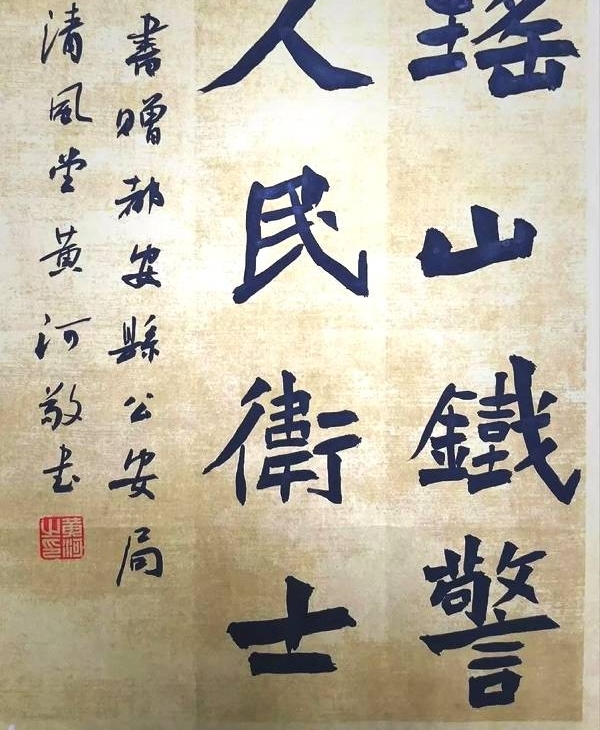 瑶山鐵警
人民衛士
書贈都安縣公安局
清風堂黄河敬书
黄河之印